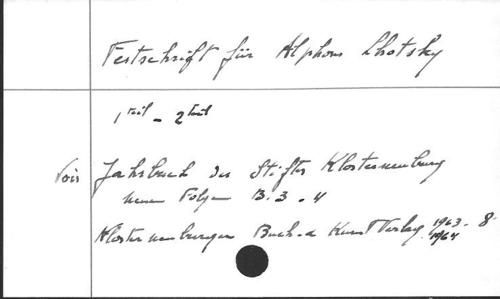 Festschrift für Alphons Lhotsky
1 teil - 2 teil
Voir Jahrbuch des Stiftes Klosterneuburg
neuen Folgen B. 3 - 4
Klosterneuburgen Buch-u Kunst Verlag 1963 - 8
1964